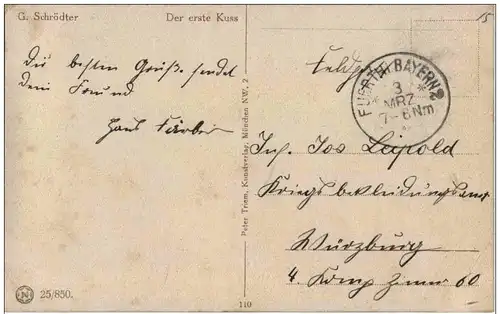 G. Schrödter Der erste Kuss
15
Die besten Grüße sendet
Dein Freund
Hans
Feldpost
FUERTH (BAYERN) 2
3
MRZ
7-8 Nm
Inf. Jos Leipold
Kriegsbekleidungsamt
Würzburg
4. Komp Zimmer 60
Peter Triem, Kunstverlag, München NW, 2
N 25/850.
110